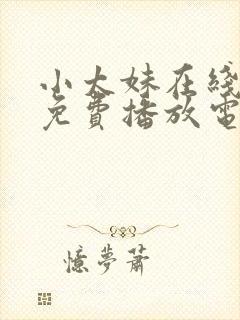 小大妹在线
免費播放電
憶夢蕭